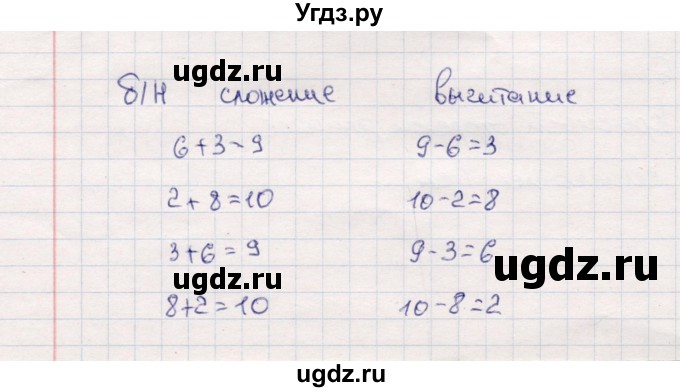 Угдз.ру
ugdz.ru
б/н сложение вычитание
ugdz.ru
6+3-9 9-6=3
2+8=10 10-2=8
ugdz.ru
3+6=9 9-3=6
ugdz.ru
8+2=10 10-8=2
ugdz.ru